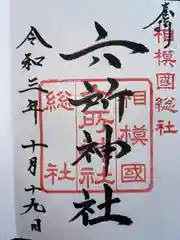 奉拝
相模國総社
六所神社
相模國
六所
神社
総社
令和三年十月十九日